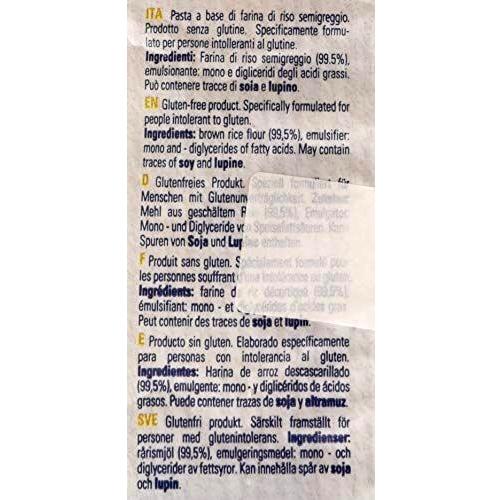 ITA Pasta a base di farina di riso semigreggio.
Prodotto senza glutine. Specificamente formu-
lato per persone intolleranti al glutine.
Ingredienti: Farina di riso semigreggio (99.5%),
emulsionante: mono e digliceridi degli acidi grassi.
Può contenere tracce di soia e lupino.
EN Gluten-free product. Specifically formulated for
people intolerant to gluten.
Ingredients: brown rice flour (99,5%), emulsifier:
mono and - diglycerides of fatty acids. May contain
traces of soy and lupine.
D Glutenfreies Produkt. Speziell formuliert für
Menschen mit Glutenunverträglichkeit. Zutaten:
Mehl aus geschältem (99,5%), Emulgator:
Mono - und Diglyceride von Speisefettsäuren. Kann
Spuren von Soja und enthalten.
F Produit sans gluten. Spécialement formulé pour
les personnes souffrant d'une intolérance au gluten.
Ingrédients: farine de décortiqué (99,5%),
émulsifiant: mono - et diglycérides d'acides gras
Peut contenir des traces de soja et lupin.
E Producto sin gluten. Elaborado específicamente
para personas con intolerancia al gluten.
Ingredientes: Harina de arroz descascarillado
(99,5%), emulgente: mono - y diglicéridos de ácidos
grasos. Puede contener trazas de soja y altramuz.
SVE Glutenfri produkt. Särskilt framställt för
personer med glutenintolerans. Ingredienser:
rårismjöl (99,5%), emulgeringsmedel: mono - och
diglycerider av fettsyror. Kan innehålla spår av soja
och lupin.